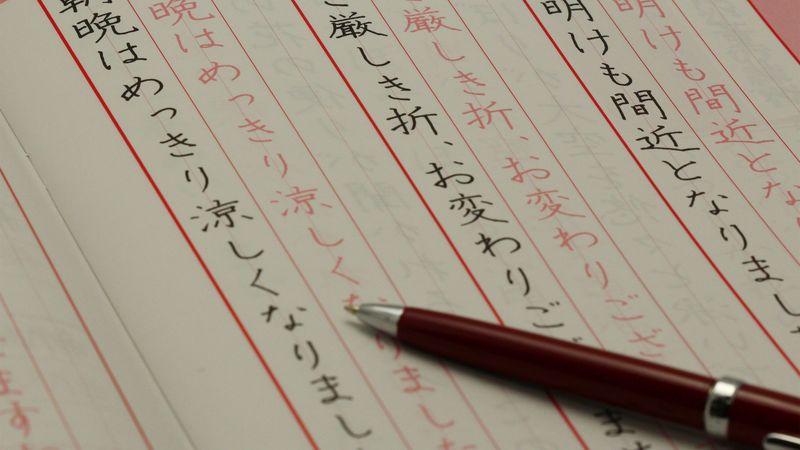 明けも間近とな
明けも間近となりまし
厳しき折、お変わりござ
厳しき折、お変わりご ま
晩はめっきり涼しくなりました
朝晩はめっきり涼しくなりまし
ます